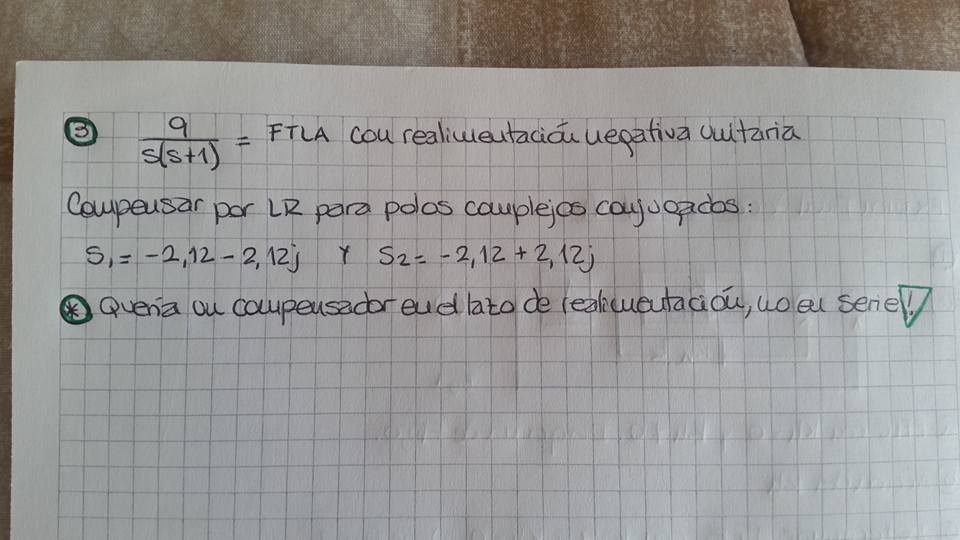 3 9/s(s+1) = FTLA con realimentación negativa unitaria
Compensar por LR para polos complejos conjugados:
S₁ = -2,12 - 2,12j Y S₂ = -2,12 + 2,12j
* Quería un compensador en el lazo de realimentación, no en serie!